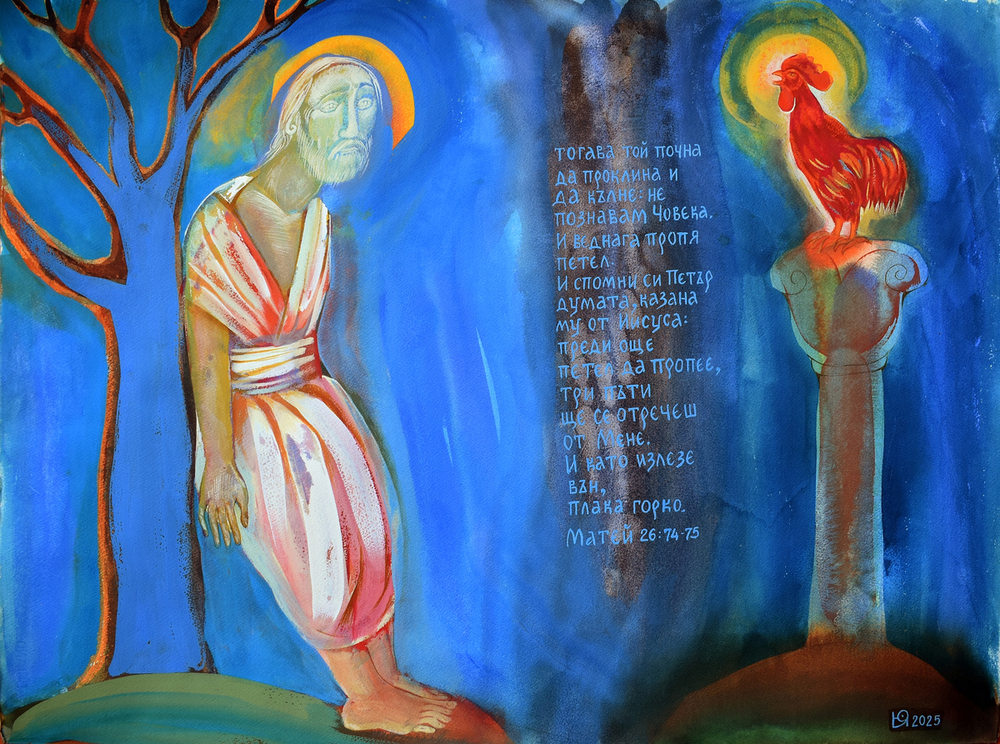 тогава той почна
да проклина и
да кълне: не
познавам Човека.
И веднага пропя
петел.
И спомни си Петър
думата, казана
му от Иисуса:
преди още
петел да пропее,
три пъти
ще се отречеш
от Мене.
И като излезе
вън,
плака горко.
Матей 26:74-75
2025